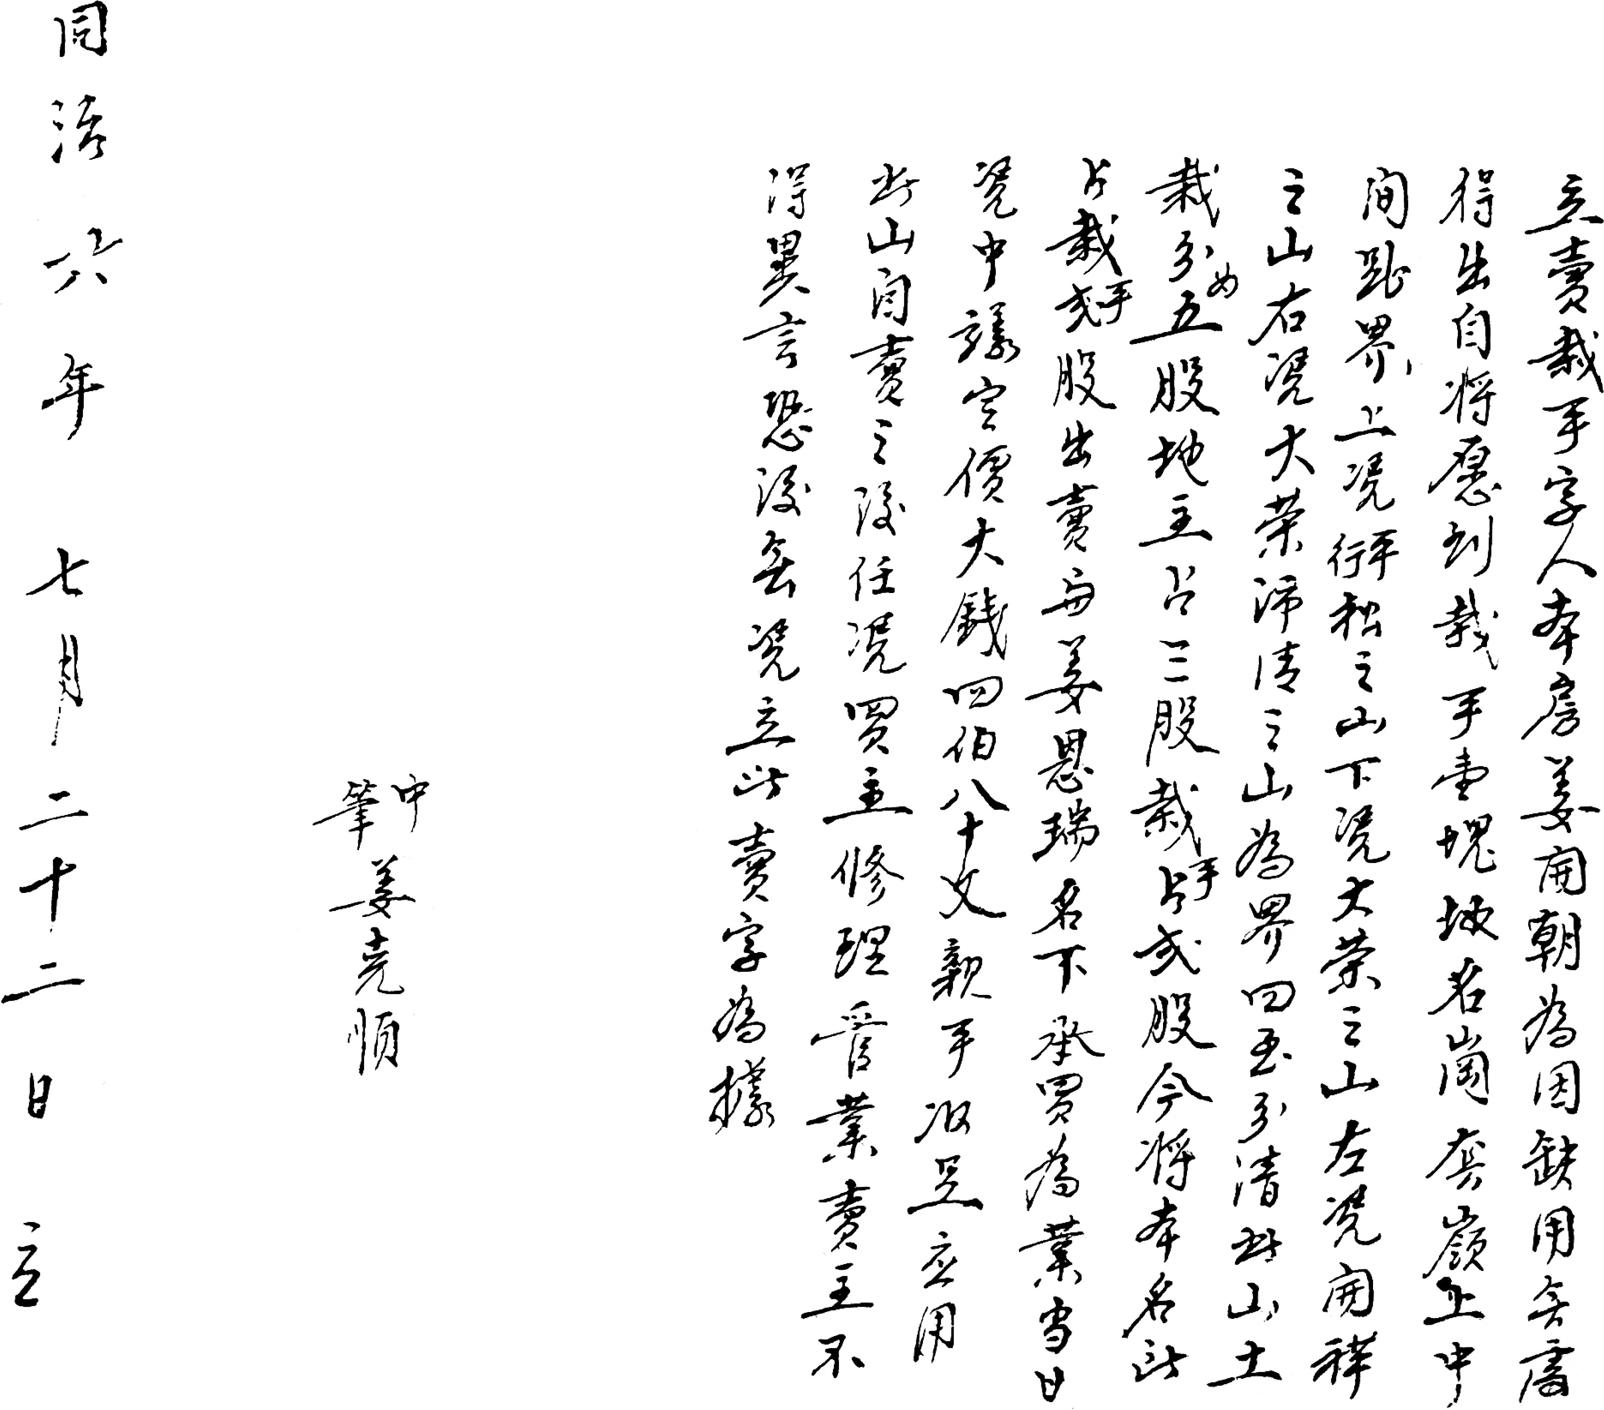 立賣栽手字人本房姜開朝為因缺用無處
得出自將愿到栽手壹塊坡名崗套嶺上中
間跐界上凴衍平松之山下凴大荣之山左凴開祥
之山右凴大荣沛清之山為界四至分清此山土
栽分為五股地主占三股栽手占弍股今將本名此
占栽手弍股出賣与姜恩瑞名下承買為業當日
凴中議定價大錢四伯八十文親手收足应用
此山自賣之後任凴買主修理管業賣主不
得異言恐後無凴立此賣字為據
中
筆 姜堯順
同治六年七月二十二日立